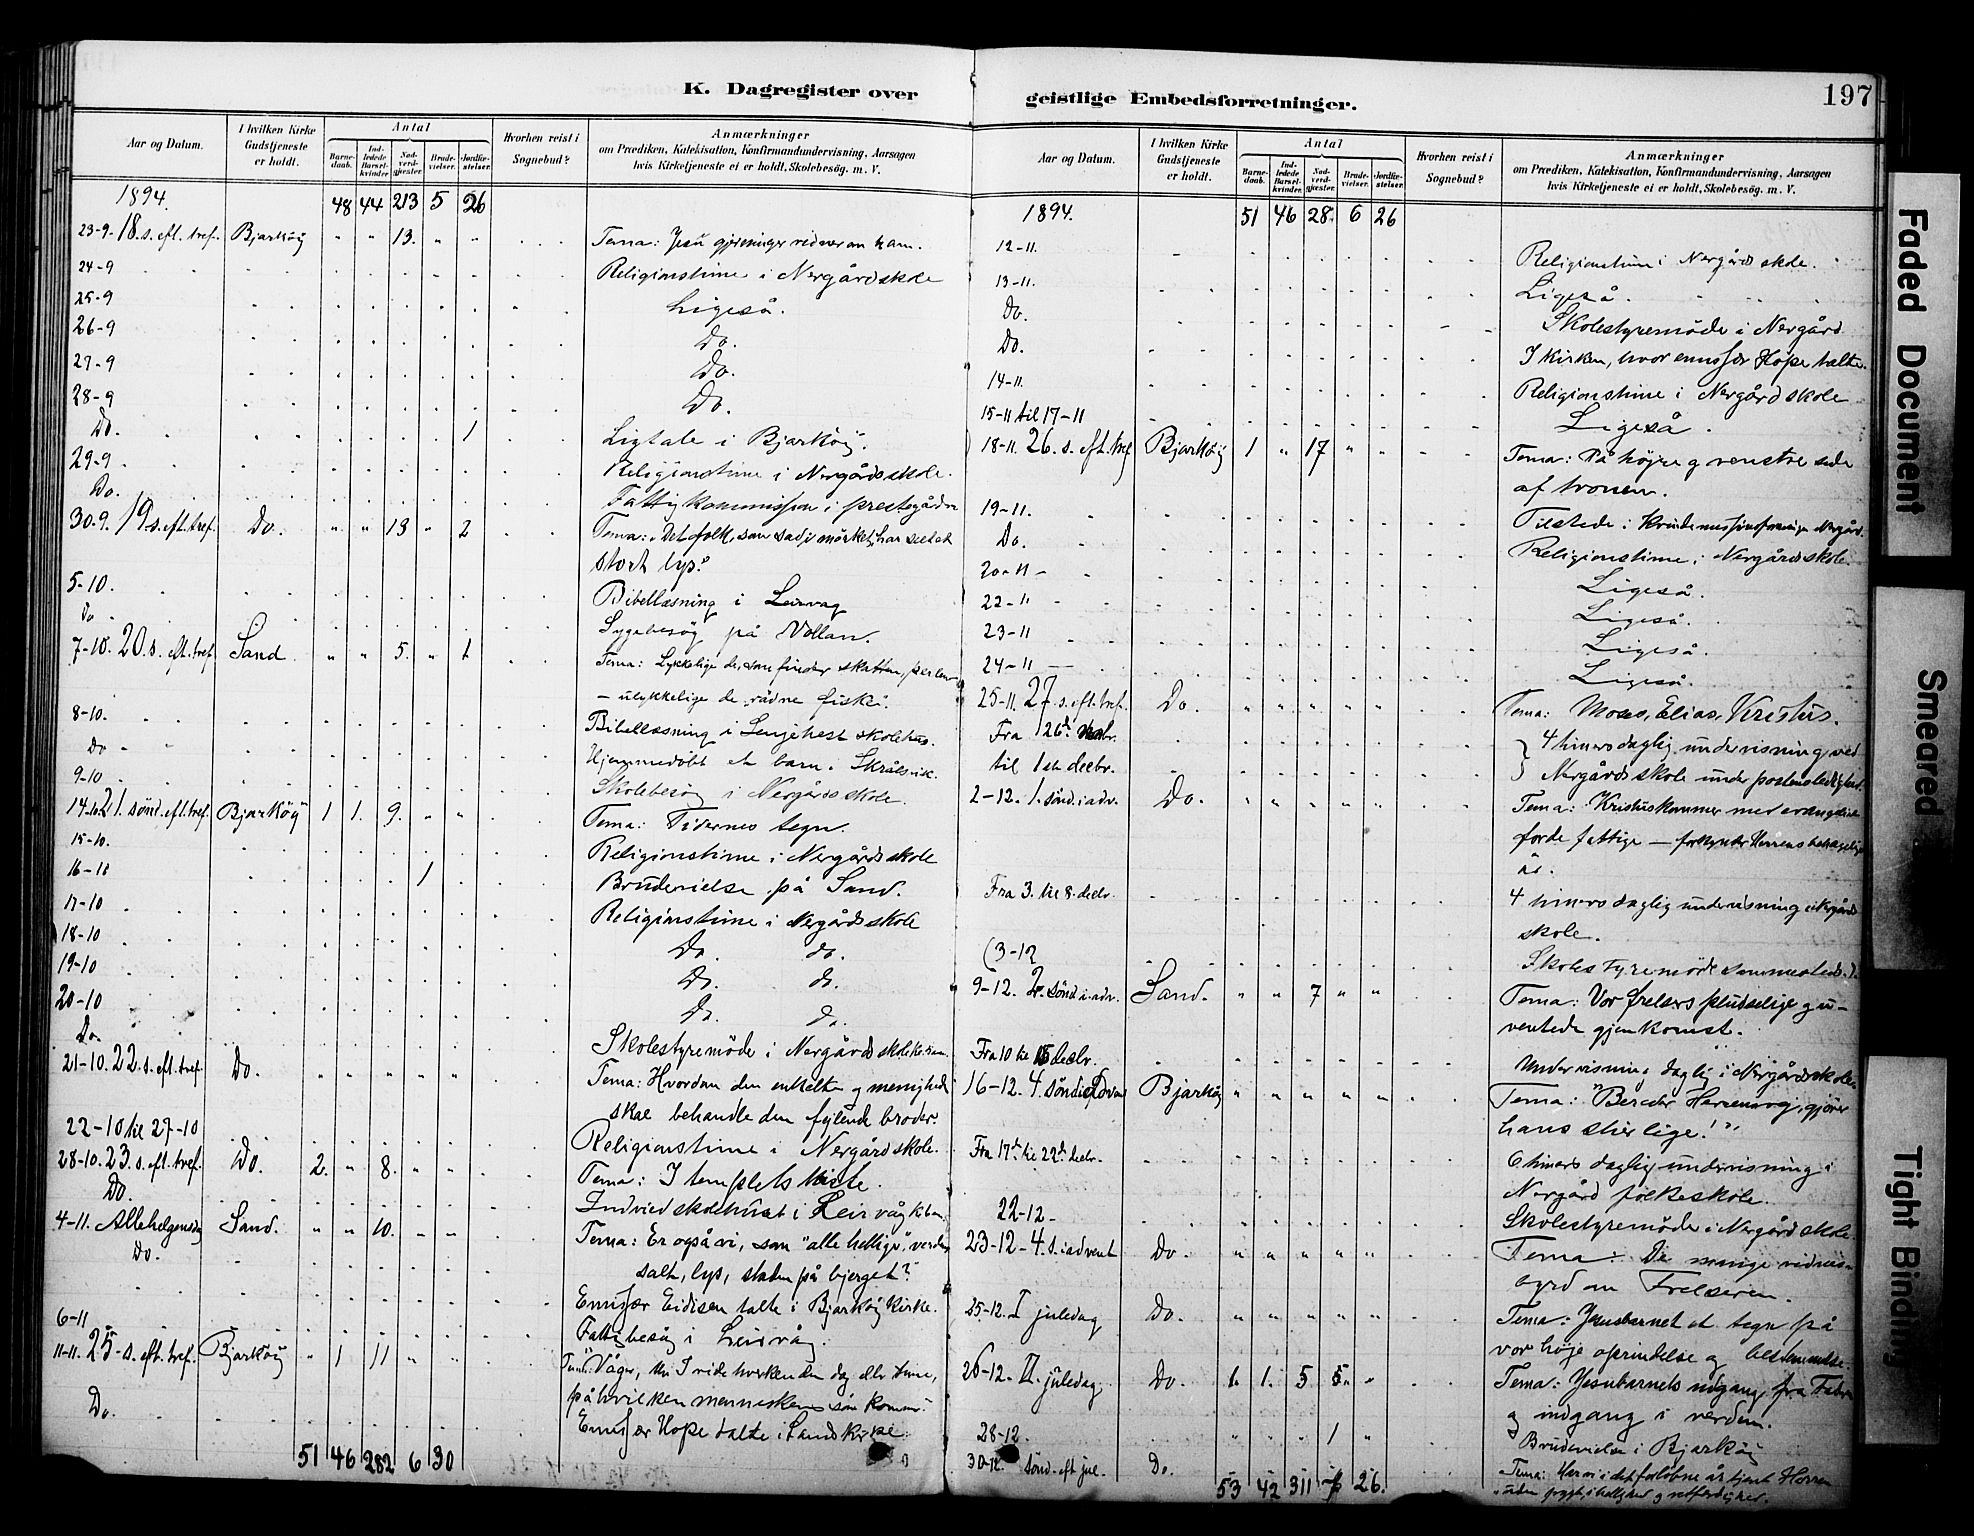 K. Dagregister over geistlige Embedsforretninger.
197
Aar og Datum.
I hvilken Kirke Gudstjeneste er holdt.
Antal
Barnedaab.
Indledede Barselkvinder.
Nadverdgjæster.
Brudevielser.
Jordfæstelser.
Hvorhen reist i Sognebud?
Anmærkninger
om Prædiken, Katekisation, Konfirmandundervisning, Aarsagen
hvis Kirketjeneste ei er holdt, Skolebesøg. m. V.
1894. 48 44 213 5 26
23-9- 18. s. eft. tref. Bjarköy " " 13. " " Tema: Jesu gjerninger vidner om ham.
24-9 Religionstime i Nergårdskole
25-9 Ligeså.
26-9 Do.
27-9 Do.
28-9 Do.
Do. 1 Ligtale i Bjarköy.
29-9 Religionstime i Nergårdsskole.
Do. Fattigkommission i prestegården
30-9. 19 s. eft. tref. Do. " " 13 " 2 Tema: "Det folk, som sad i mörket, har seet et
stort lys."
5-10. Bibellæsning i Leirvag
Do Sygebesög på Vollan.
7-10. 20. s. eft. tref. Sand " " 5. " 1 Tema: Lykkelige de, som finder skatten, perlen
— ulykkelige de "rådne fiske".
8-10. Bibellæsning i skolehus.
Do Hjemmedöbt et barn i
9-10 Skolebesög i Nergårdsskole.
14-10. 21. sönd. eft. tref. Bjarköy 1 1. 9. " " Tema: Tidernes tegn.
15-10. Religionstime i Nergårdskole
16-10 1 Brudevielse på Sand.
17-10 Religionstime i Nergårdsskole
18-10 Do. do.
19-10 Do. do.
20-10 Do. do.
Do. Skolestyremöde i Nergårdskolekreds.
21-10. 22. s. eft. tref. Do. " " " " " Tema: Hvordan den enkelte og menigheden
skal behandle den fejlende broder.
22-10 til 27-10 Religionstime i Nergårdskole.
28-10. 23. s. eft. tref. Do. 2. " 8. " " Tema: I templets kiste.
Do. Indvied skolehuset i Leirvåg
4-11. Allehelgensdag Sand. " " 10. " " Tema: Er også vi, som "alle hellige", verdens
Do. salt, lys, staden på bjerget?
Emissær Eidisen talte i Bjarköy kirke.
6-11 Fattigbesög i Leirvåg.
11-11. 25. s. eft. tref. Bjarköy " 1 11 " " Tema: "Våger, thi I vide hverken den dag eller time,
på hvilken menneskens sön kommer."
Do. Emissær Hope talte i Sand kirke.
51 46 282 6 30
Aar og Datum.
I hvilken Kirke Gudstjeneste er holdt.
Antal
Barnedaab.
Indledede Barselkvinder.
Nadverdgjæster.
Brudevielser.
Jordfæstelser.
Hvorhen reist i Sognebud?
Anmærkninger
om Prædiken, Katekisation, Konfirmandundervisning, Aarsagen
hvis Kirketjeneste ei er holdt, Skolebesøg. m. V.
1894. 51 46 28. 6 26
12-11. Religionstime i Nergårdskole.
13-11. Ligeså.
Do. Skolestyremöde i Nergård
Do. I kirken, hvor emissær Hope talte.
14-11. Religionstime i Nergårdskole
15-11 til 17-11 Ligeså.
18-11. 26. s. eft. tref Bjarköy 1 " 17 " " Tema: På höjre og venstre side
af tronen.
19-11. Tilstede i Kvindemissionsforening Nergård.
Do. Religionstime i Nergårdsskole.
20-11 Ligeså.
22-11 Ligeså.
23-11 Ligeså.
24-11 Ligeså.
25-11. 27. s. eft. tref. Do. " " " " " Tema: Moses, Elias, Kristus.
Fra 26de til 1ste decbr. 4 timers daglig undervisning ved
Nergårdsskole under postens ledighed.
2-12. 1. sönd. i adv. Do. " " " " " Tema: Kristus kommer med evangelium
for de fattige — forkynder Herrens behagelige
år.
Fra 3. til 8. decbr. 4 timers daglig undervisning i Nergårds
skole.
(3-12 Skolestyremöde sammesteds.)
9-12. 2. sönd. i adv. Sand. " " 7 " " Tema: Vor frelsers pludselige og u-
ventede gjenkomst.
Fra 10 til 15 decbr. Undervisning daglig i Nergårdsskole.
16-12. Bjarköy " " " " " Tema: "Bereder Herrens vej, gjører
hans stier lige!"
Fra 17de til 22de decbr. 6 timers daglig undervisning i
Nergård folkeskole.
22-12- Skolestyremöde i Nergårdskole.
23-12 - 4. s. i advent Do. " " " " " Tema: De mange vidnes-
byrd om Frelseren.
25-12. I juledag Do. " " " " " Tema: Jesusbarnet et tegn på
vor höje oprindelse og bestemmelse.
26-12. II juledag Do. 1. 1. 5 5. " Tema: Jesubarnets udgang fra Fader
og indgang i verden.
28-12. " " " 1 " Brudevielse i Bjarköy
30-12. sönd. eft jul. Do. Tema: Har vi i det forløbne år tjent Herren
uden frygt, i hellighed og retfærdighed.
53 42 311 7 26.
Faded Document
Smeared
Tight Binding